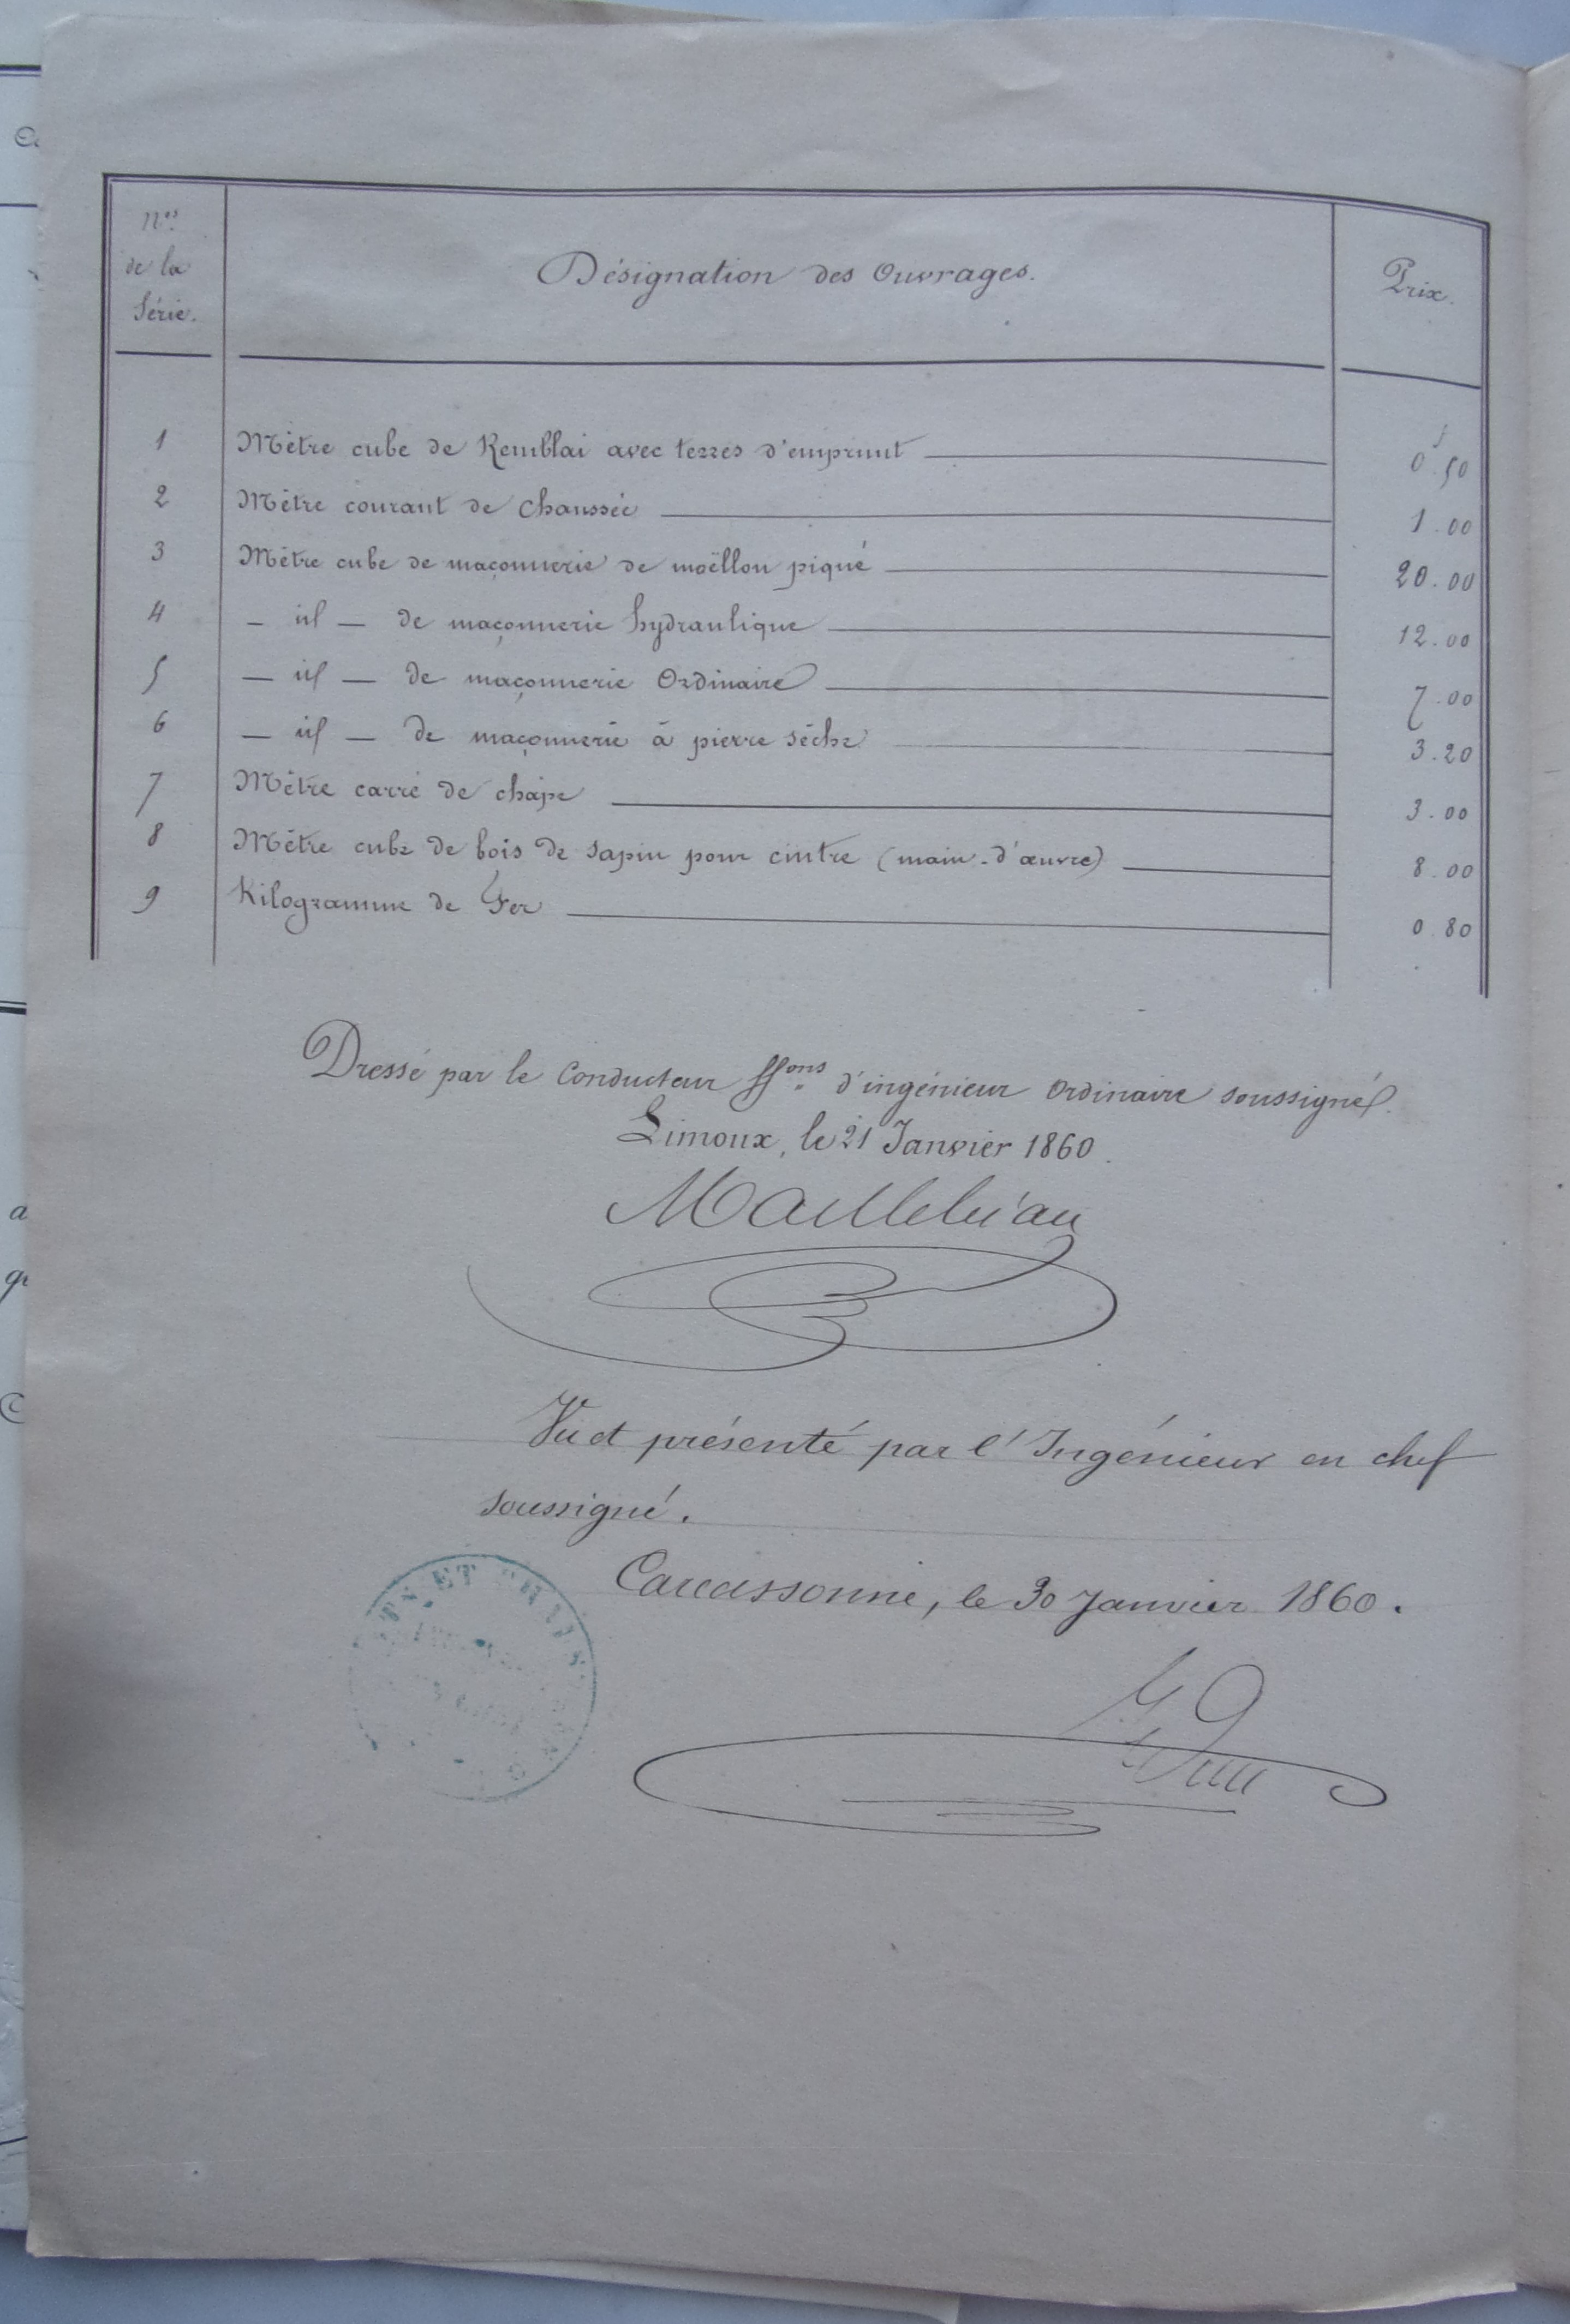 Nos
de la
Série.
Désignation des Ouvrages.
Prix.
1 Mètre cube de Remblai avec terres d'emprunt 0f.50
2 Mètre courant de chaussée 1.00
3 Mètre cube de maçonnerie de moëllon piqué 20.00
4 — id — de maçonnerie hydraulique 12.00
5 — id — de maçonnerie Ordinaire 7.00
6 — id — de maçonnerie à pierre sèche 3.20
7 Mètre carré de chape 3.00
8 Mètre cube de bois de sapin pour cintre (main-d'œuvre) 8.00
9 Kilogramme de Fer 0.80
Dressé par le Conducteur ffons d'ingénieur Ordinaire soussigné.
Limoux, le 21 Janvier 1860.
Vu et présenté par l'Ingénieur en chef
soussigné.
Carcassonne, le 30 Janvier 1860.
ET